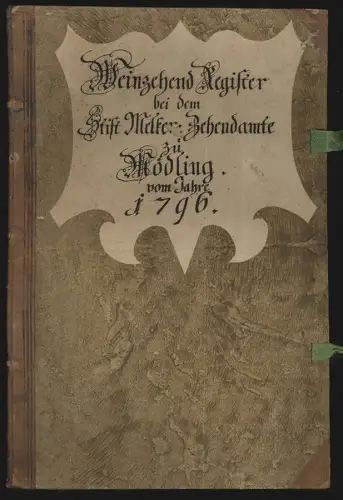 Weinzehend Register
bei dem
Stift Melker-Zehendamte
zu
Mödling.
vom Jahre
1796.